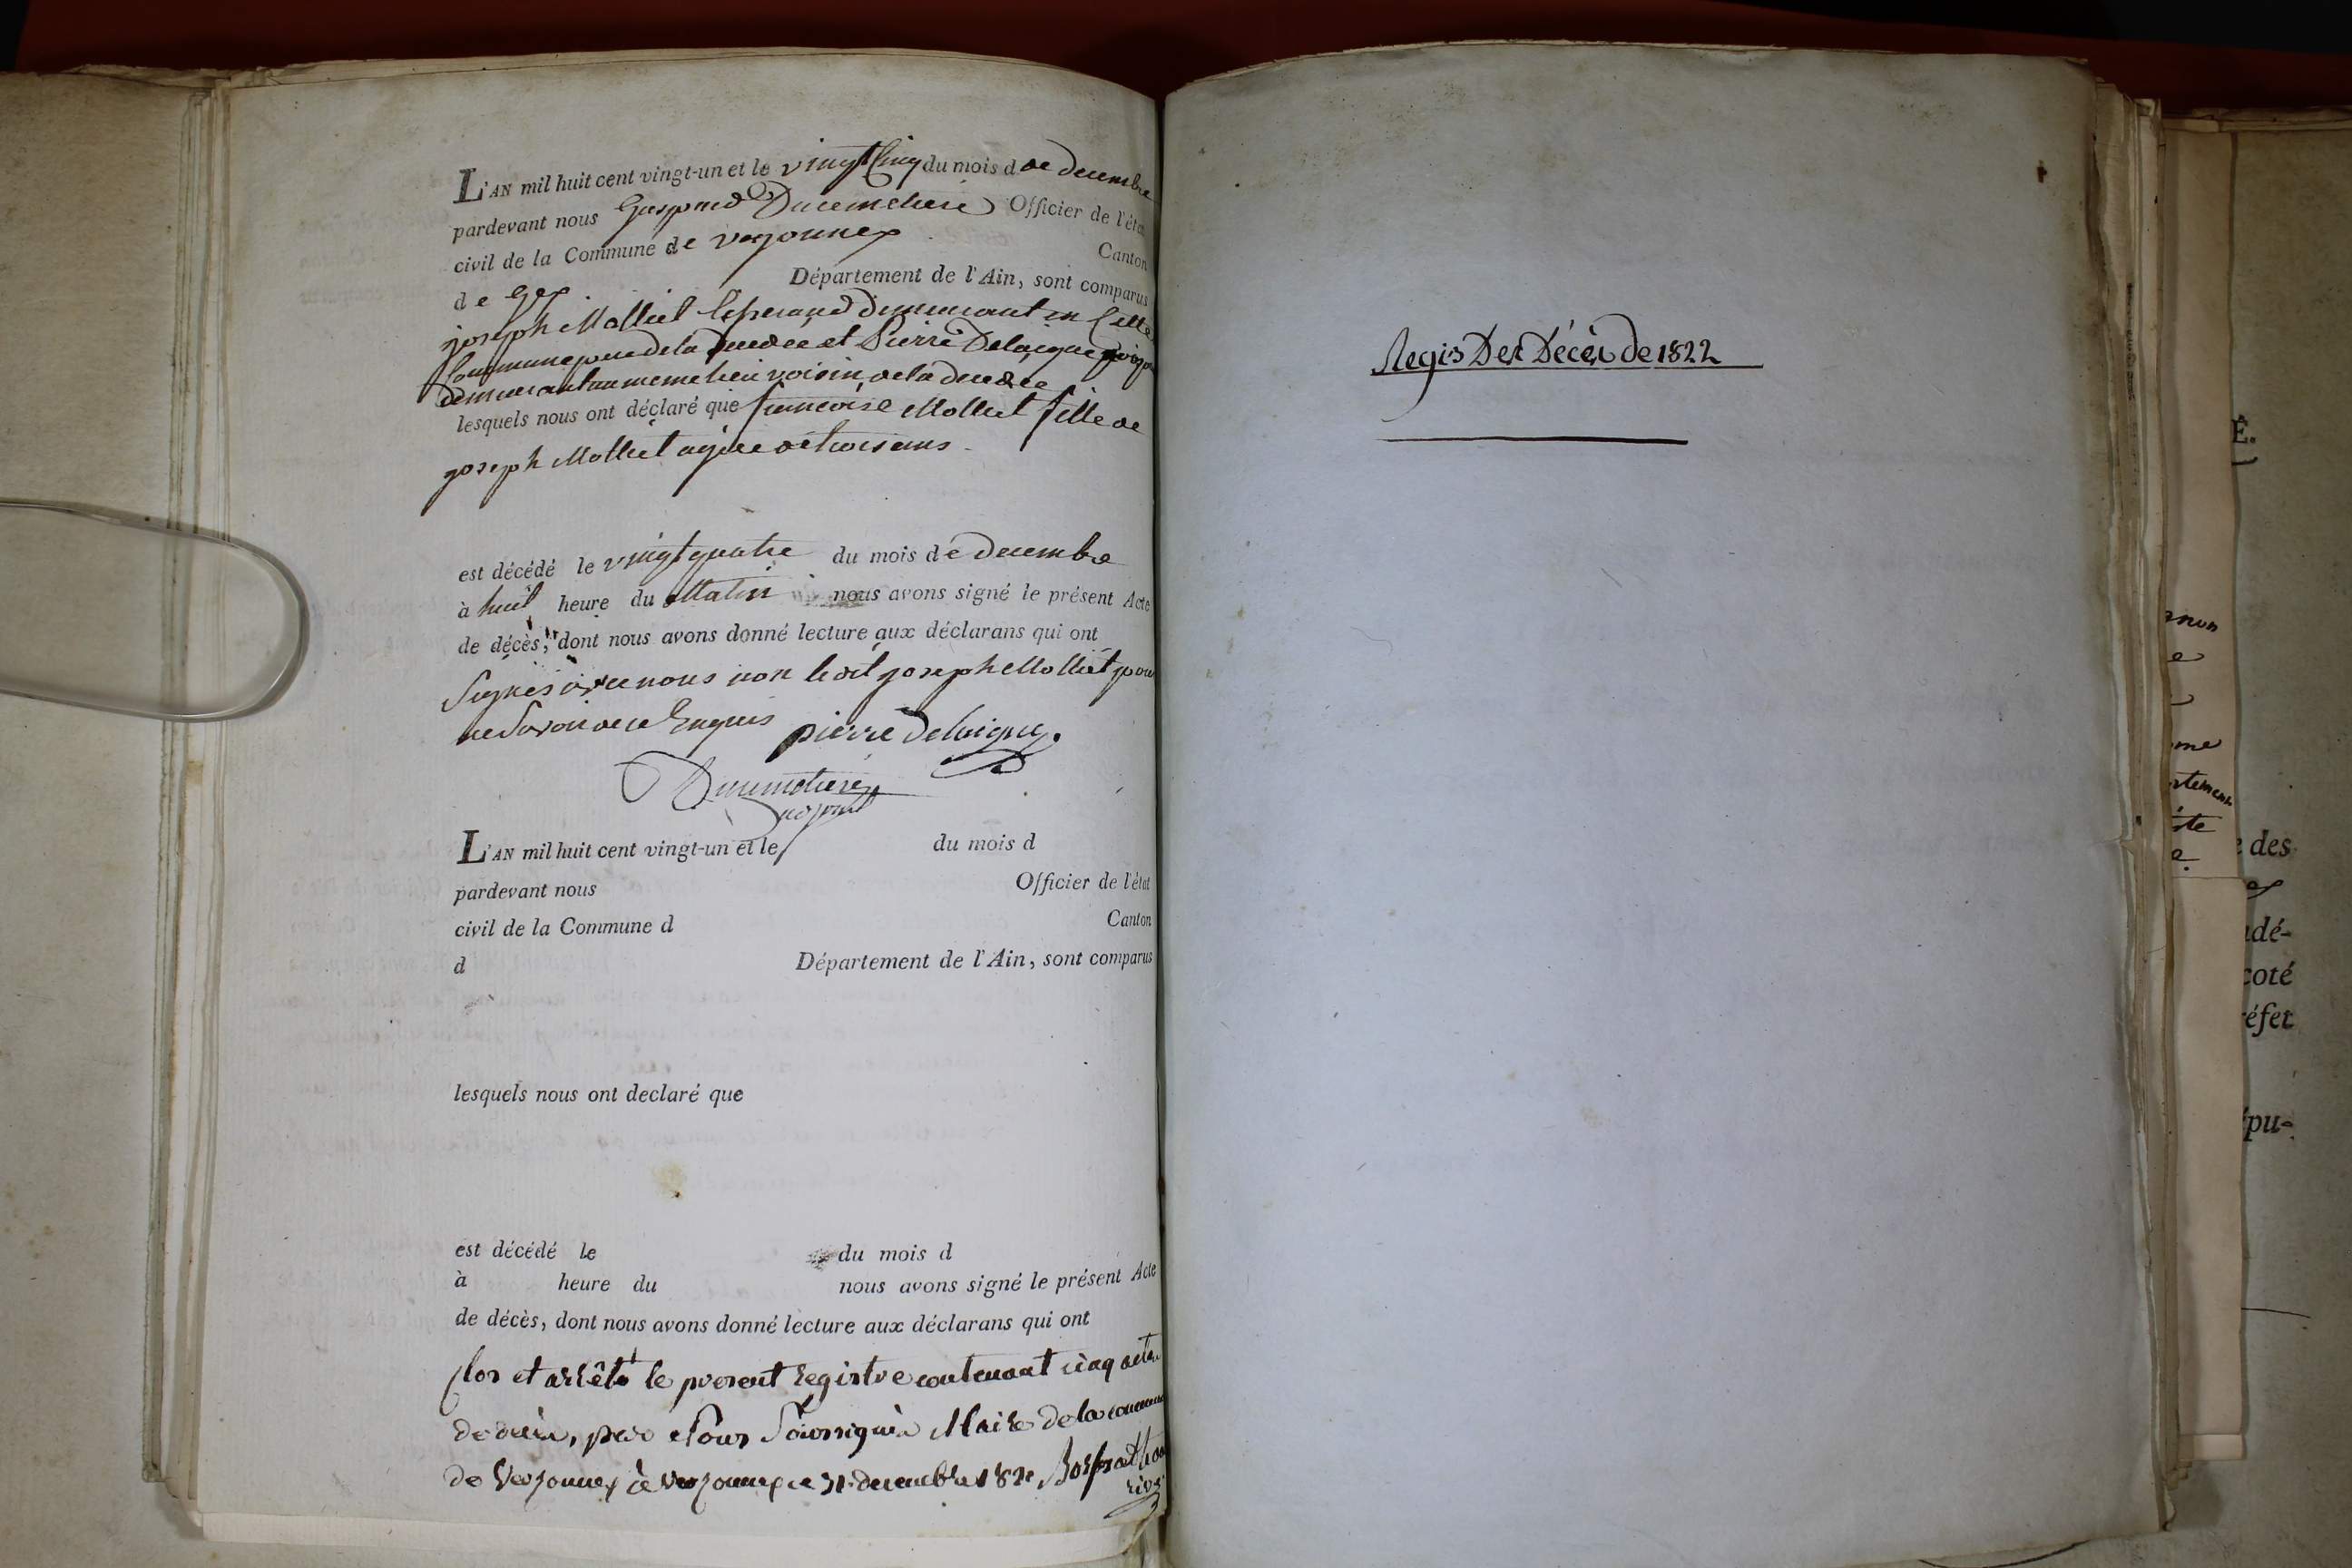 L'AN mil huit cent vingt-un et le vingt Cinq du mois d de decembre
pardevant nous Gaspard Ducimetiere Officier de l'état
civil de la Commune de versonnex Canton
de Gex Département de l'Ain, sont comparus
joseph Molliet demeurant en Cette
Commune pere de la decedée et Pierre Delaigue
demeurant au meme lieu voisin de la decedée
lesquels nous ont déclaré que francoise Molliet fille de
joseph Molliet agée de trois ans
est décédé le vingt quatre du mois de decembre
à huit heure du Matin nous avons signé le présent Acte
de décès, dont nous avons donné lecture aux déclarans qui ont
Signés avec nous non ledit joseph Molliet pour
ne Savoir de ce Enquis pierre Delaigue.
Ducimetiere
adjoint
L'AN mil huit cent vingt-un et le du mois d
pardevant nous Officier de l'état
civil de la Commune d Canton
d Département de l'Ain, sont comparus
lesquels nous ont declaré que
est décédé le du mois d
à heure du nous avons signé le présent Acte
de décès, dont nous avons donné lecture aux déclarans qui ont
Clos et arrêté le present registre contenant cinq actes
de décès, par Nous Soussigné Maire de la commune
de Versonnex à Versonnex ce 31 decembre 1821
Regis Des Décès de 1822
É.
e des
adé-
coté
réfet
épu-